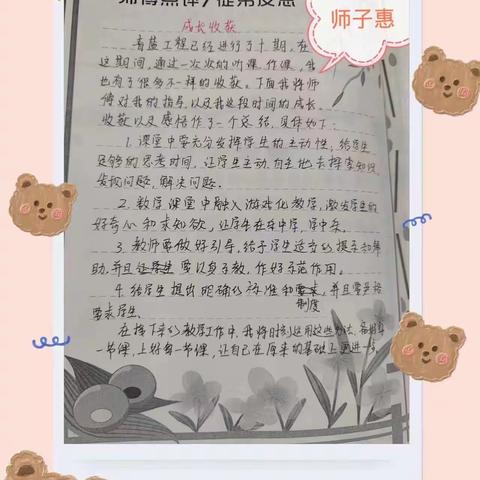 师傅点评/徒弟反思
师子惠
成长收获
青蓝工程已经进行了十期,在
这期间,通过一次次的听课,作课,我
也有了很多不一样的收获。下面我将师
傅对我的指导,以及我这段时间的成长、
收获以及感悟作了一个总结,具体如下:
1.课堂中要充分发挥学生的主动性,给学生
足够的思考时间,让学生主动,自主地去探索知识,
发现问题,解决问题。
2.数学课堂中融入游戏化教学,激发学生的
好奇心和求知欲,让学生在乐中学,学中乐。
3.教师要做好引导,给予学生适当的提示和帮
助,并且要以身子教,作好示范作用。
4.给学生提出明确的标准和制度,并且要严格
要求学生。
在接下来的教学工作中,我将时刻运用这些方法,备好每
一节课,上好每一节课,让自己在原来的基础上更进一步。